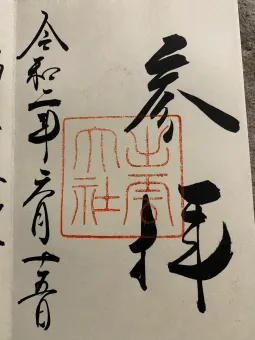 参拝
出雲大社
令和二年三月十五日